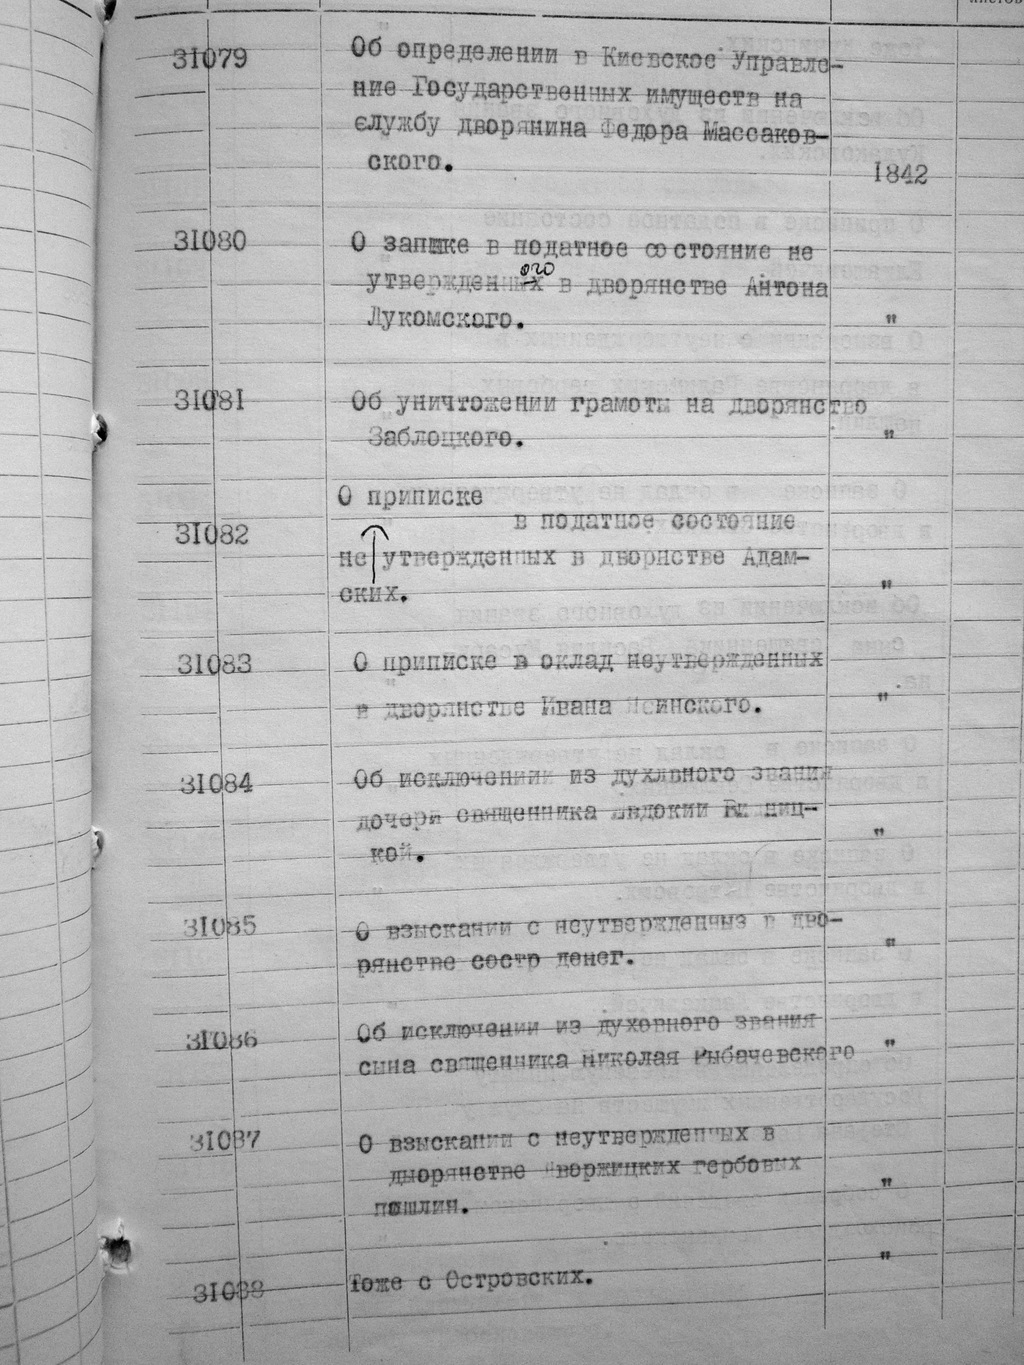 31079 Об определении в Киевское Управле-
ние Государственных имуществ на
службу дворянина Федора Массаков-
ского.
1842
31080 О запшке в податное состояние не
ого
утвержденных в дворянстве Антона
Лукомского. "
31081 Об уничтожении грамоты на дворянство
Заблоцкого. "
О приписке
31082 в податное состояние
не утвержденных в дворнстве Адам-
ских. "
31083 О приписке в оклад неутвержденных
в дворянстве Ивана Ясинского. "
31084 Об исключениии из духлвного звания
дочери священника Евдокии
кой. "
31085 О взыскании с неутвержденныз в дво-
рянстве состр денег. "
31086 Об исключении из духовного звания
сына священника Николая Рыбачевского "
31087 О взыскании с неутвержденных в
дыорянстве гербовых
пошлин. "
31088 Тоже с Островских. "